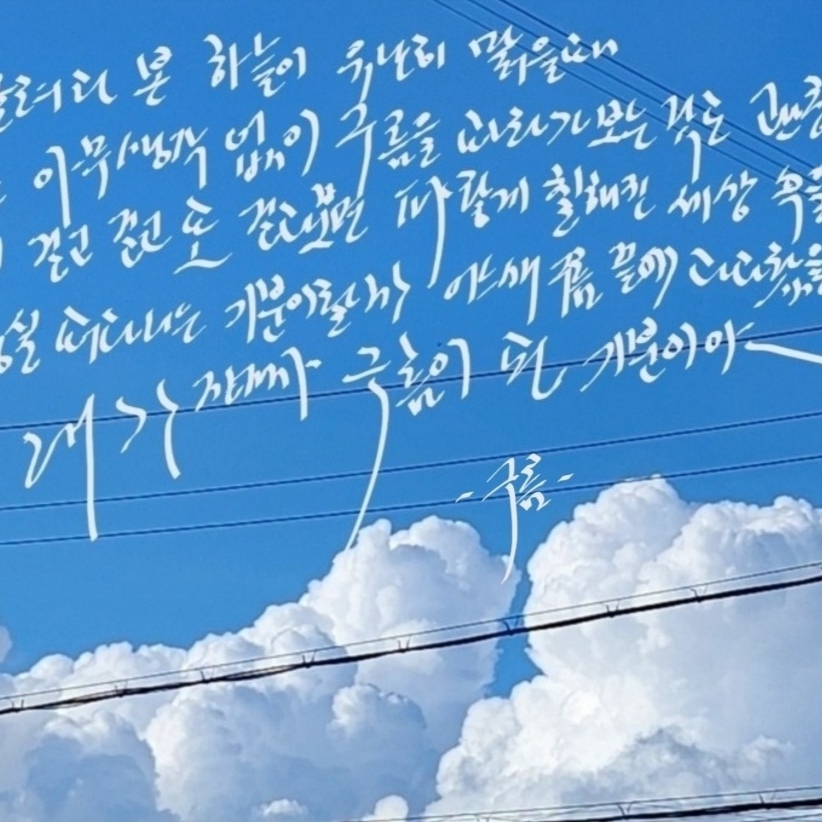 올려다 본 하늘이 유난히 맑을때
아무생각 없이 구름을 따라가 보는 것도
걷고 걷고 또 걷다보면 파랗게 칠해진 세상 속을
떠다니는 기분이랄까 끝에 다다랐을
내가 진짜 구름이 된 기분이야
-구름-